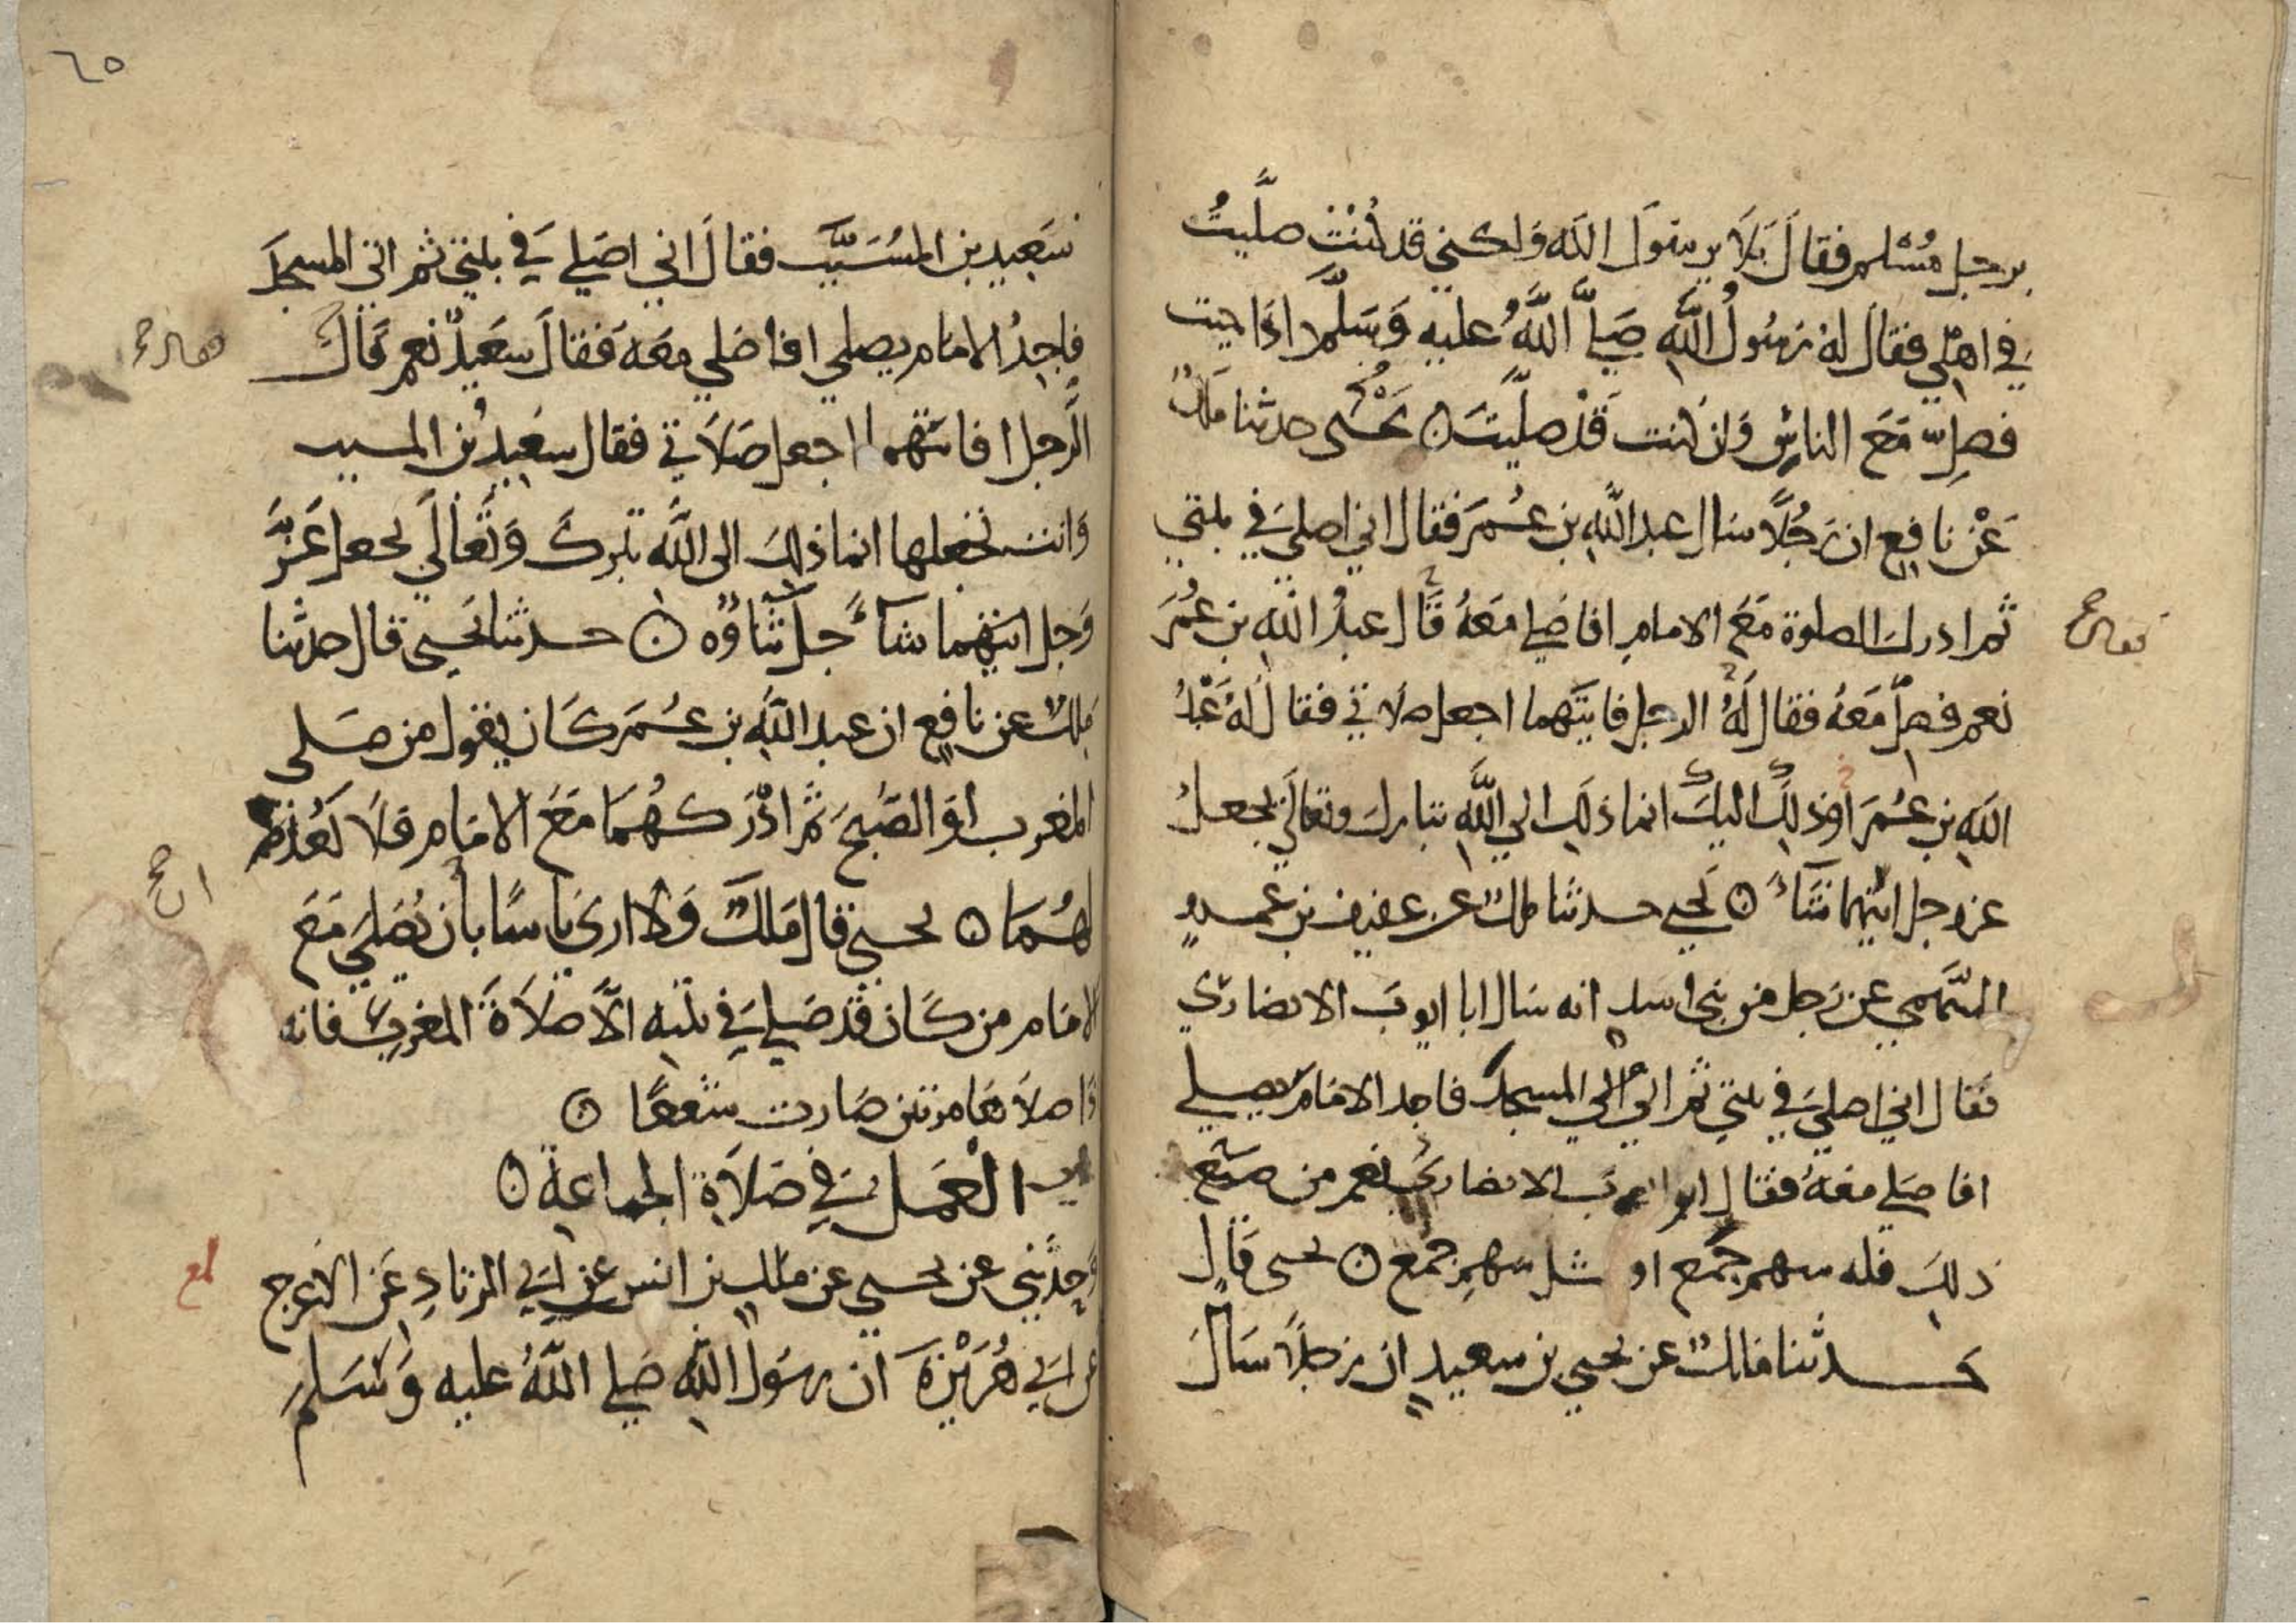 برجل مسلم فقال بلا يرسول الله ولكني قد كنت صليت
في اهلي فقال له رسول الله صلى الله عليه وسلم اذا جيت
فصل مع الناس وان كنت قد صليت ه يحيى حدثنا ملك
عن نافع ان رجلا سال عبد الله بن عمر فقال اني اصلي في بيتي
ثم ادرك الصلوة مع الامام افاصلي معه قال عبد الله بن عمر
نعم فصل معه فقال له الرجل فايتهما اجعل صلاتي فقال له عبد
الله بن عمر اوذلك اليك انما ذلك الي الله تبارك وتعالى يجعل
عز وجل ايتهما شاء ه يحيى حدثنا ملك عن عفيف بن عمرو
السهمي عن رجل من بني اسد انه سال ابا ايوب الانصاري
فقال اني اصلي في بيتي ثم اتي الي المسجد فاجد الامام يصلي
افاصلي معه فقال ابو ايوب الانصاري نعم من صنع
ذلك فله سهم جمع او مثل سهم جمع ه يحيى قال
حدثنا مالك عن يحيى بن سعيد ان رجلا سال
٦٥
سعيد بن المسيب فقال اني اصلي في بيتي ثم اتي المسجد
فاجد الامام يصلي افاصلي معه فقال سعيد نعم قال
الرجل افايتهما اجعل صلاتي فقال سعيد بن المسيب
وانت تجعلها انما ذلك الى الله تبرك وتعالي يجعل عز
وجل ايتهما شاء جل ثناؤه ه حدثنا يحيى قال حدثنا
ملك عن نافع ان عبد الله بن عمر كان يقول من صلى
المغرب او الصبح ثم ادركهما مع الامام فلا يعد
لهما ه يحيى قال ملك ولا اري باسا بان يصلي مع
الامام من كان قد صلي في بيته الا صلاة المغرب فانه
اذا صلاها مرتين صارت شفعا ه
العمل في صلاة الجماعة ه
وحدثني عن يحيى عن ملك بن انس عن ابي الزناد عن الاعرج
عن ابي هريرة ان رسول الله صلي الله عليه وسلم